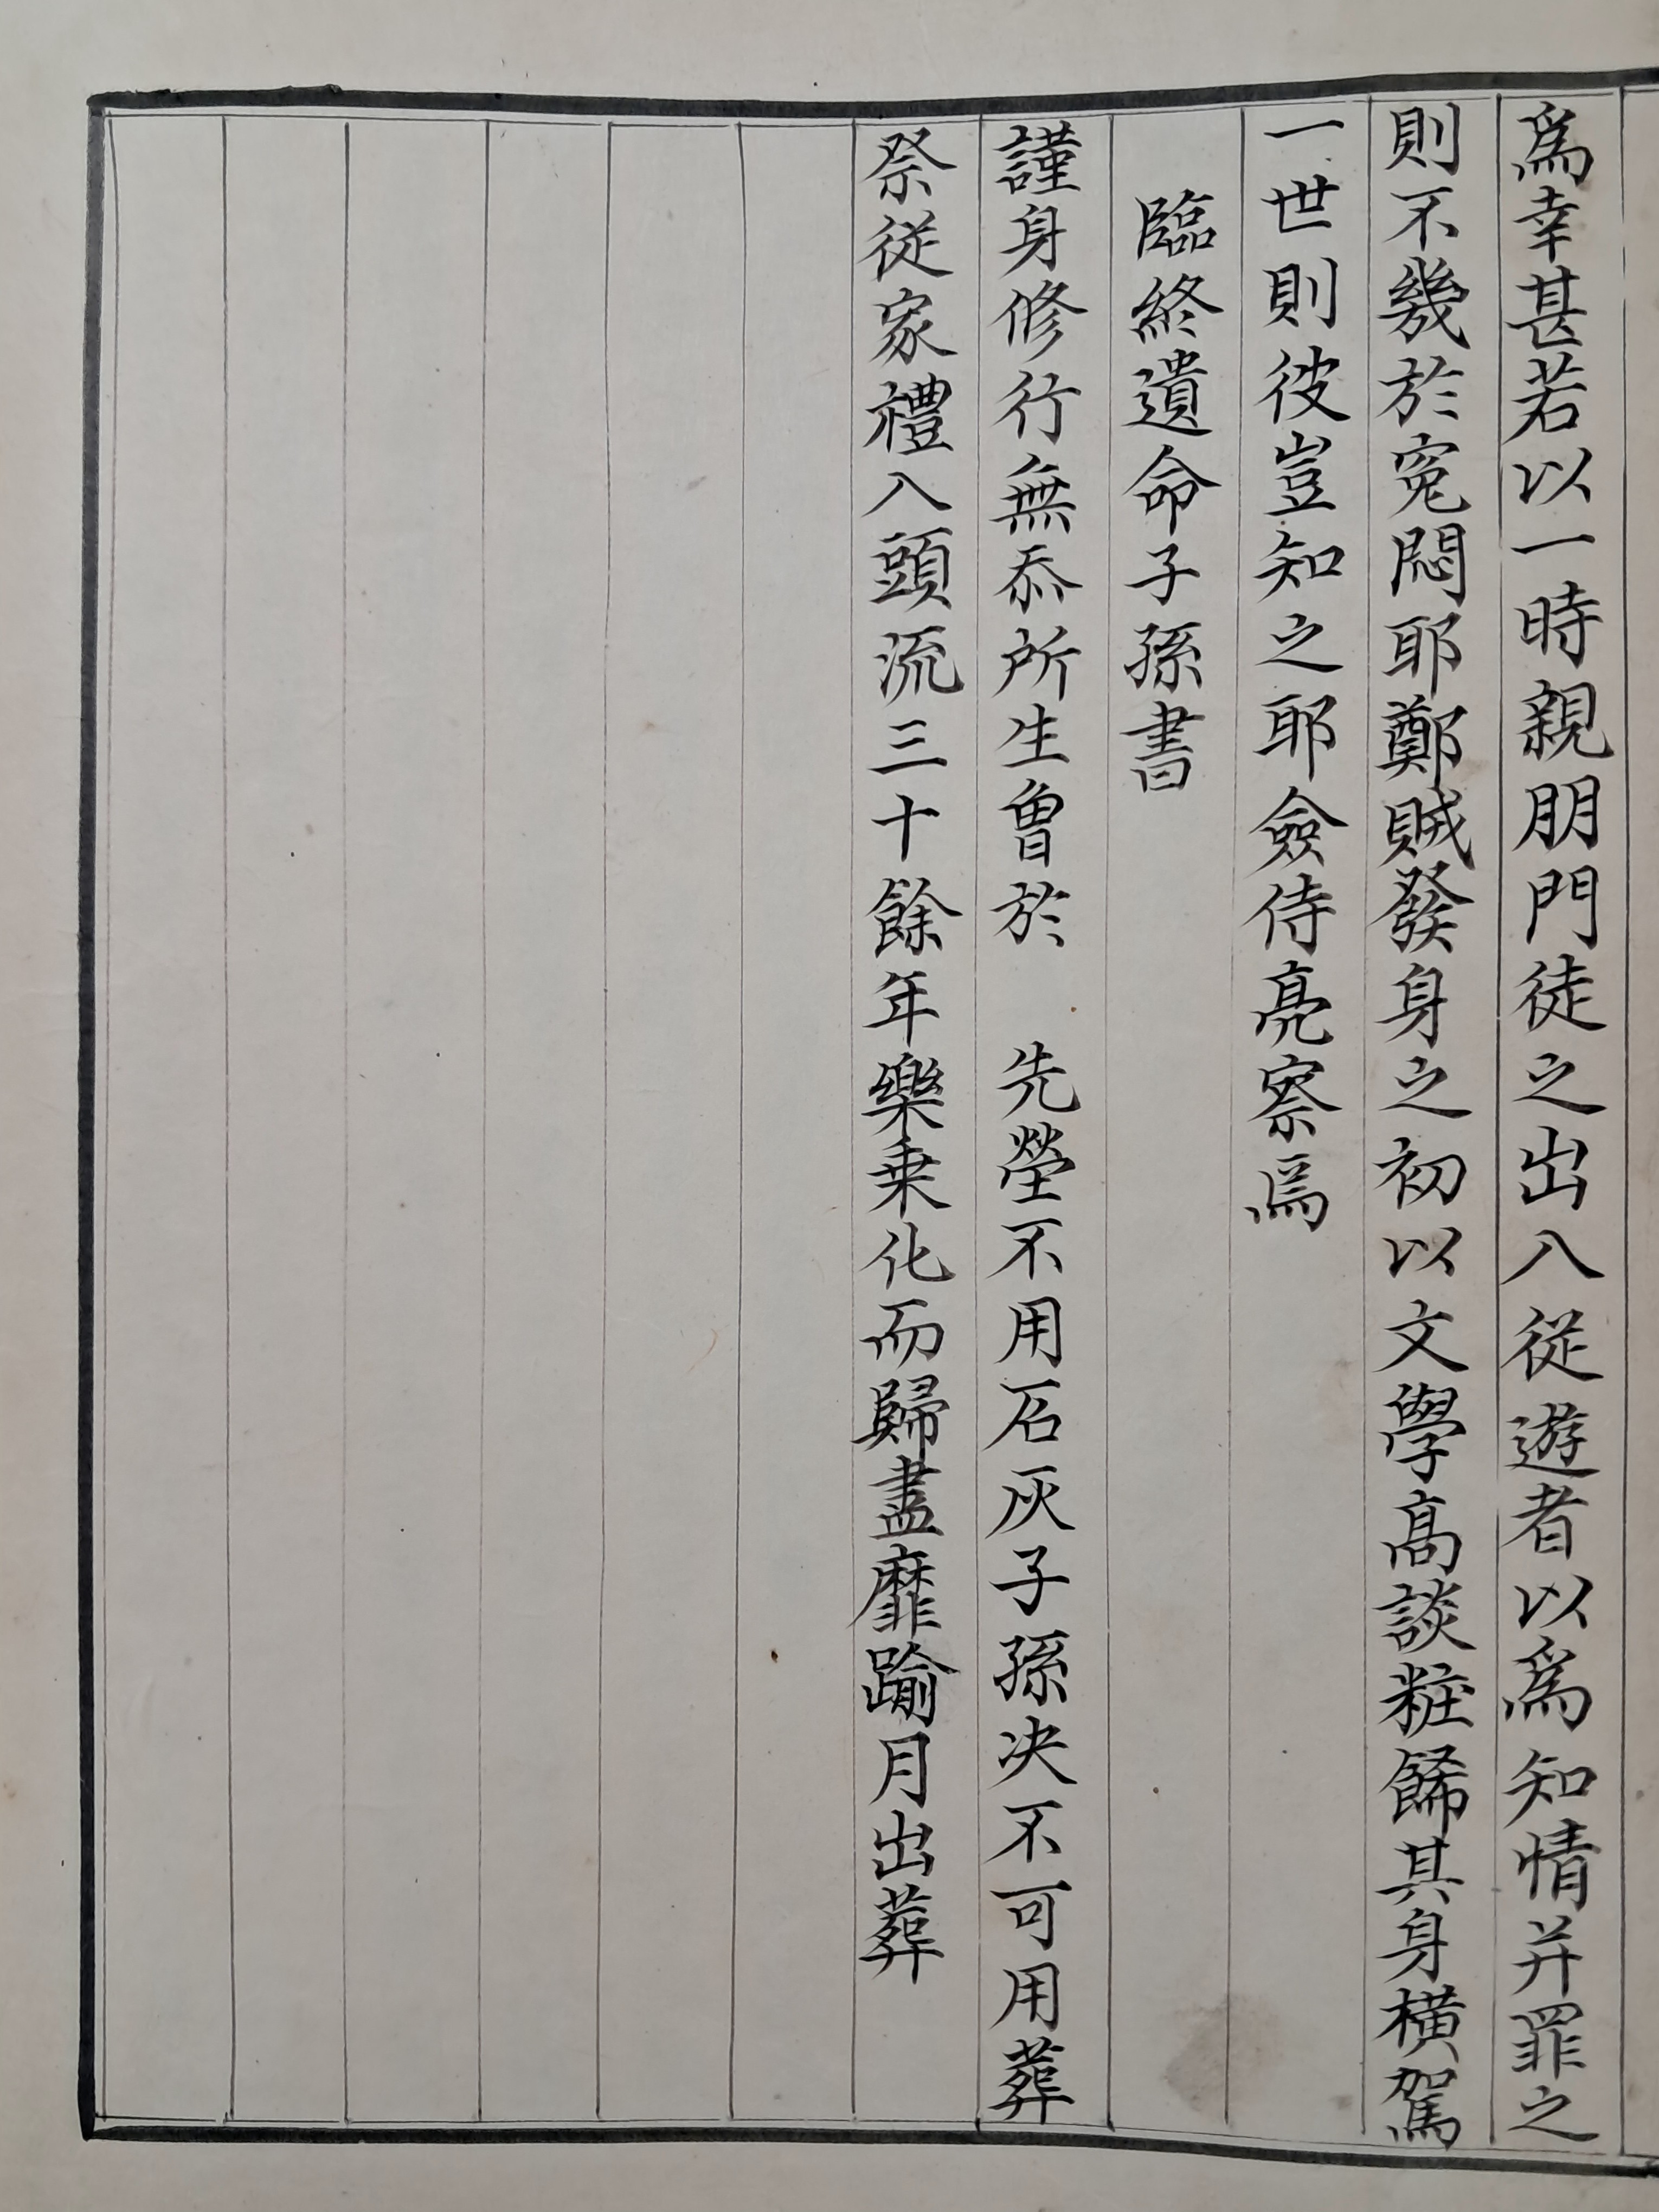 爲幸甚若以一時親朋門徒之出入從遊者以爲知情并罪之
則不幾於寃悶耶鄭賊發身之初以文學高談粧餙其身橫駕
一世則彼豈知之耶僉侍亮察焉
臨終遺命子孫書
謹身修行無忝所生曾於 先塋不用石灰子孫决不可用葬
祭從家禮入頭流三十餘年樂乗化而歸盡靡踰月出葬